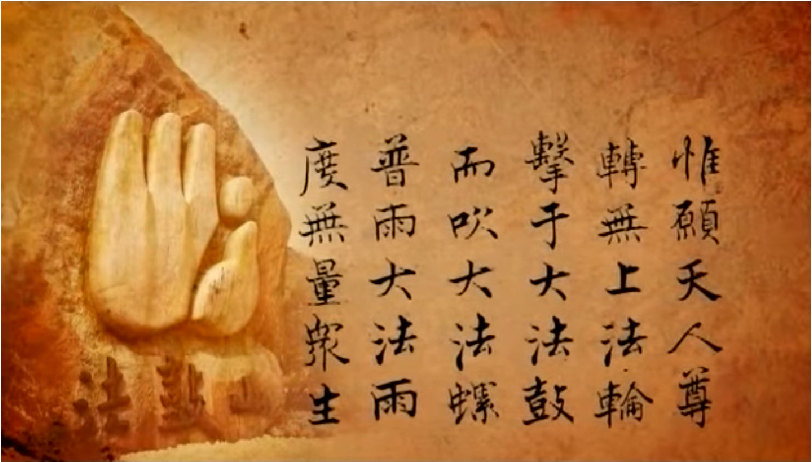 惟願天人尊
轉無上法輪
擊于大法鼓
而吹大法螺
普雨大法雨
度無量眾生
法鼓山